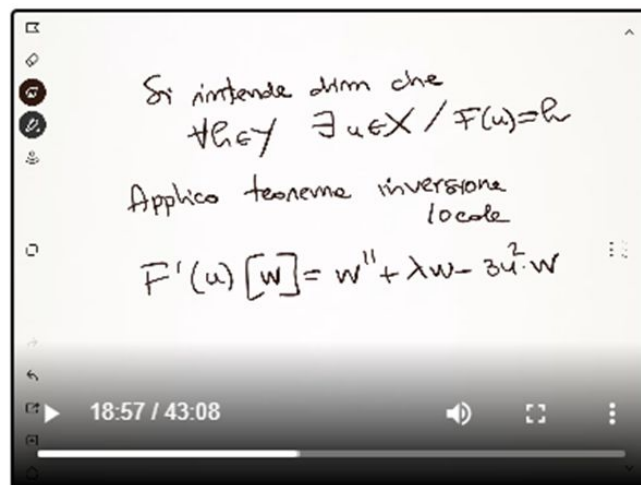 Si intende dim che
∀h∈Y ∃ u∈X / F(u)=h
Applico teorema inversione
locale
F'(u)[w] = w'' + λw - 3u²·w
18:57 / 43:08